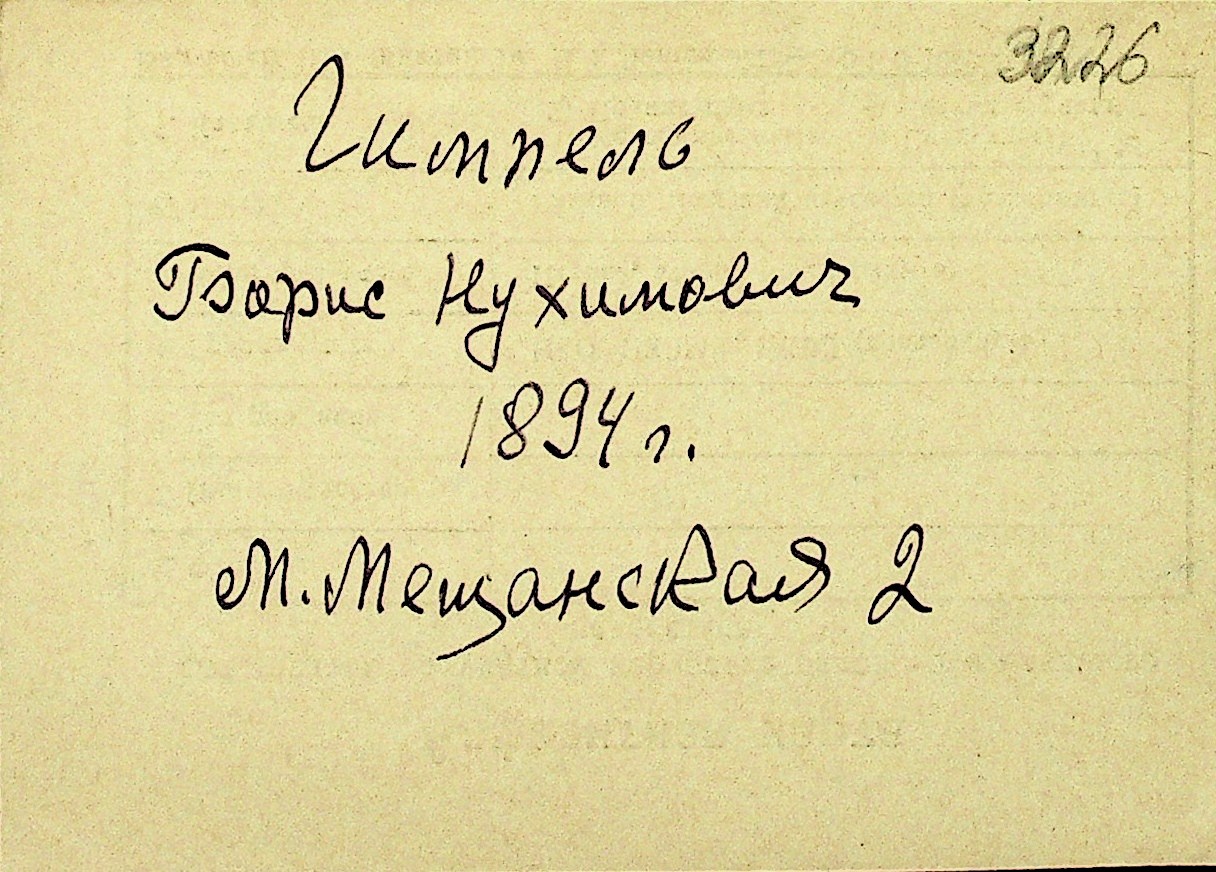 3226
Гимпель
Борис Нухимович
1894 г.
М. Мещанская 2